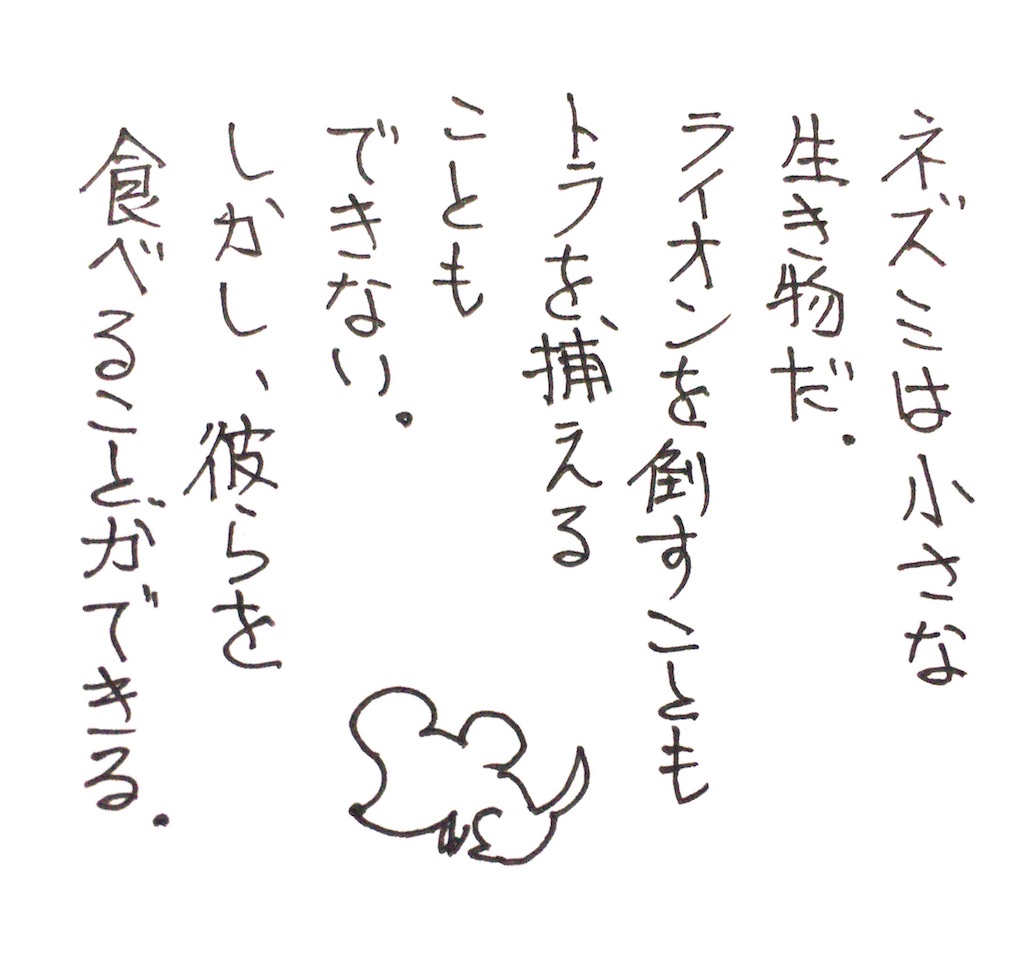 ネズミは小さな
生き物だ.
ライオンを倒すことも
トラを捕える
ことも
できない.
しかし、彼らを
食べることができる.